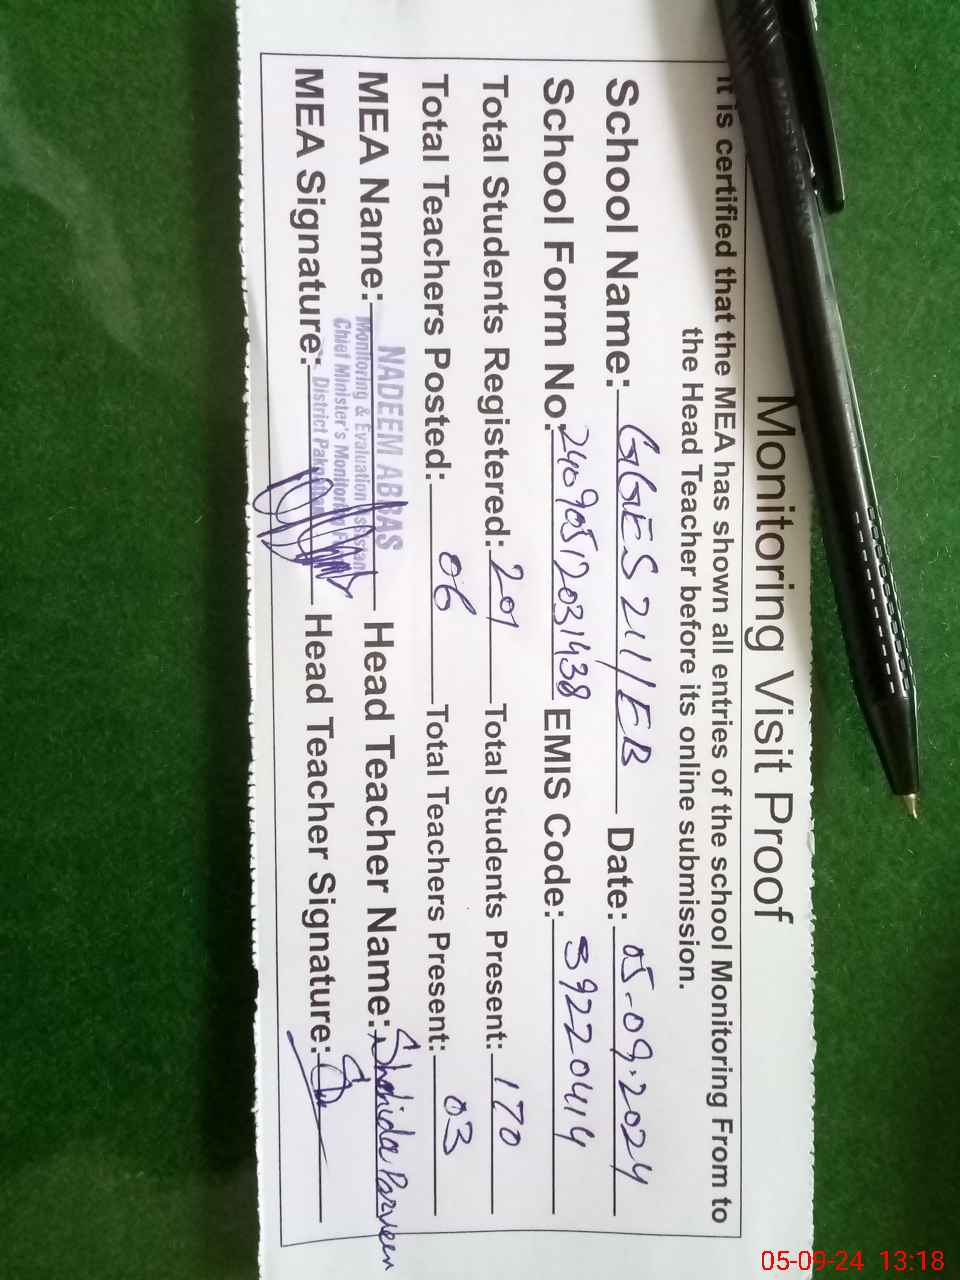 Monitoring Visit Proof
It is certified that the MEA has shown all entries of the school Monitoring From to
the Head Teacher before its online submission.
School Name: GGES 211/EB Date: 05-09-2024
School Form No: 24090512031438 EMIS Code: 39220414
Total Students Registered: 201 Total Students Present: 170
Total Teachers Posted: 06 Total Teachers Present: 03
MEA Name: NADEEM ABBAS Head Teacher Name: Shahida Parveen
Monitoring & Evaluation Assistant
Chief Minister's Monitoring
District Pakpattan
MEA Signature: Head Teacher Signature:
05-09-24 13:18